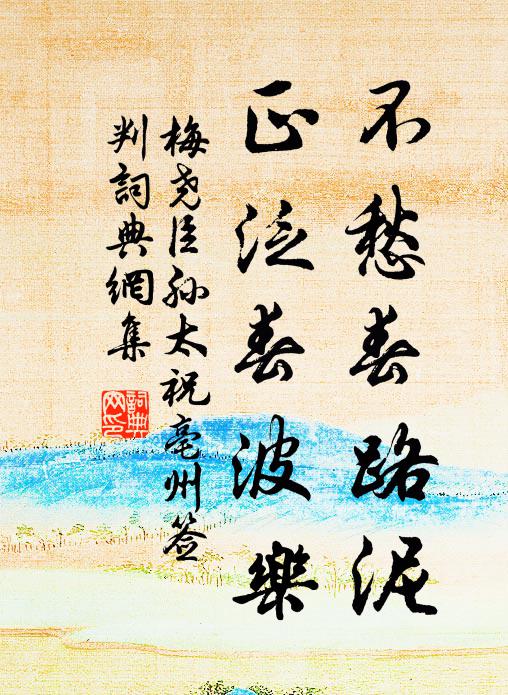 不愁春路泥
正泛春波樂
梅尧臣孙太祝亳州签
判詞典網集
詞典
网印